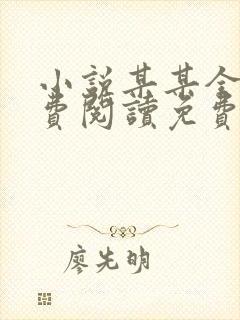 小説某某全
費閱讀免費
廖先明